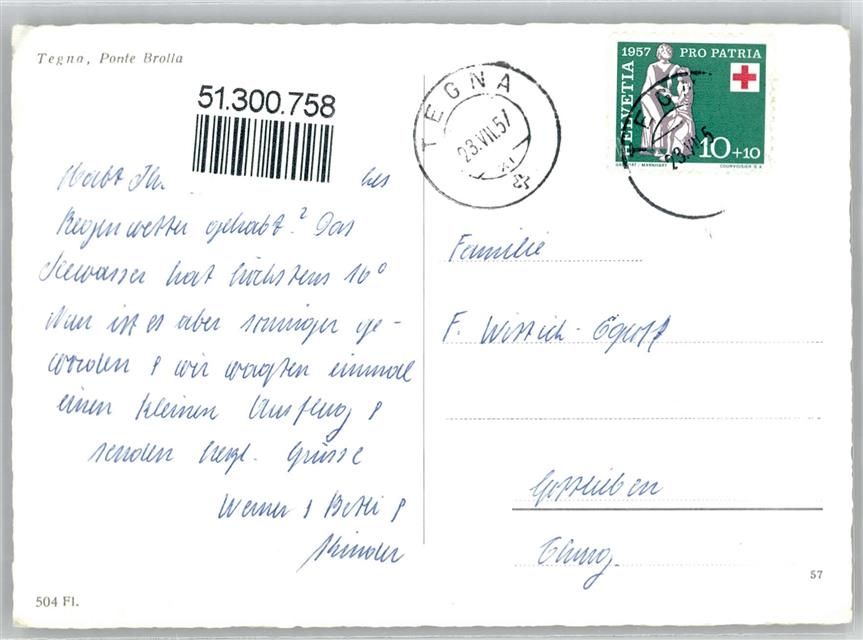 Tegna, Ponte Brolla
51.300.758
Habt Ihr
Regenwetter gehabt? Das
Seewasser hat höchstens 16°
Nun ist es aber sonniger ge-
worden & wir wagten einmal
einen kleinen Ausflug &
senden herzl. Grüsse
Werner & Betli &
Kinder
504 Fl.
TEGNA
23.VII.57
1957 PRO PATRIA
HELVETIA
10+10
COURVOISIER S A
TEGNA
23.VII.5
Familie
F. Wittich-
Gottlieben
Thurg.
57